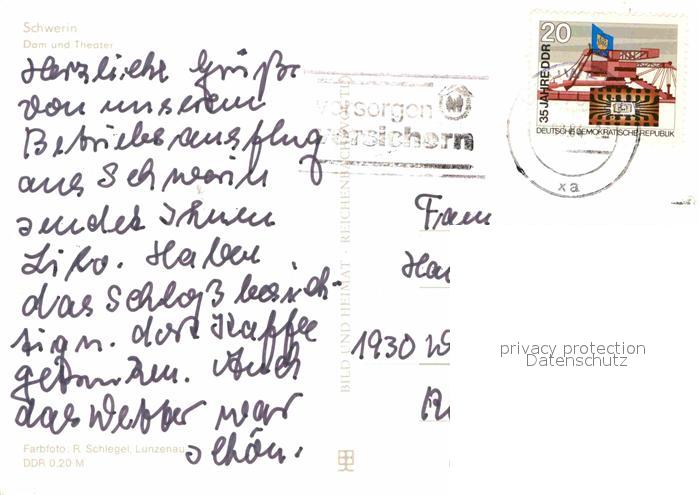 Schwerin
Dom und Theater
Herzliche Grüße
von unserem
Betriebsausflug
aus Schwerin
sendet Ihnen
Lilo. Haben
das Schloß besich-
tign. dort Kaffee
getrunken. Auch
das Wetter war
schön.
Farbfoto: R. Schlegel, Lunzenau
DDR 0,20 M
BILD UND HEIMAT · REICHENBACH
vorsorgen
versichern
20
35 JAHRE DDR
DEUTSCHE DEMOKRATISCHE REPUBLIK
xa
Frau
1930
privacy protection
Datenschutz